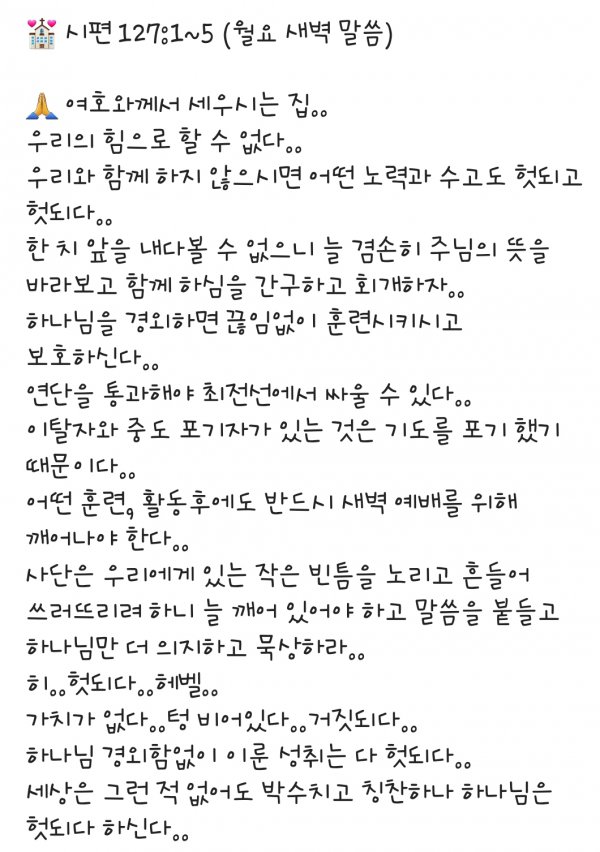 💒 시편 127:1~5 (월요 새벽 말씀)
🙏 여호와께서 세우시는 집..
우리의 힘으로 할 수 없다..
우리와 함께 하지 않으시면 어떤 노력과 수고도 헛되고
헛되다..
한 치 앞을 내다볼 수 없으니 늘 겸손히 주님의 뜻을
바라보고 함께 하심을 간구하고 회개하자..
하나님을 경외하면 끊임없이 훈련시키시고
보호하신다..
연단을 통과해야 최전선에서 싸울 수 있다..
이탈자와 중도 포기자가 있는 것은 기도를 포기 했기
때문이다..
어떤 훈련, 활동후에도 반드시 새벽 예배를 위해
깨어나야 한다..
사단은 우리에게 있는 작은 빈틈을 노리고 흔들어
쓰러뜨리려 하니 늘 깨어 있어야 하고 말씀을 붙들고
하나님만 더 의지하고 묵상하라..
히..헛되다..헤벨..
가치가 없다..텅 비어있다..거짓되다..
하나님 경외함없이 이룬 성취는 다 헛되다..
세상은 그런 적 없어도 박수치고 칭찬하나 하나님은
헛되다 하신다..